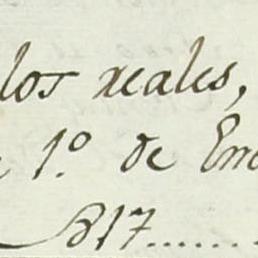 los reales,
1.º de Ene
1817.......